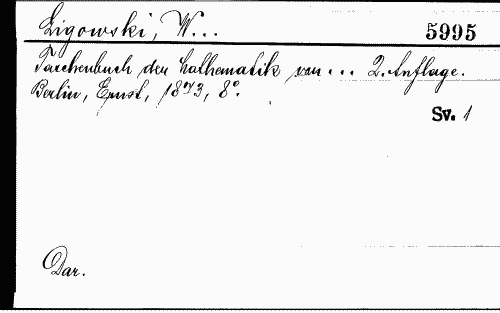 Ligowski, W... 5995
Taschenbuch der Mathematik von ... 2. Auflage.
Berlin, Ernst, 1873, 8°.
Sv. 1
Dar.